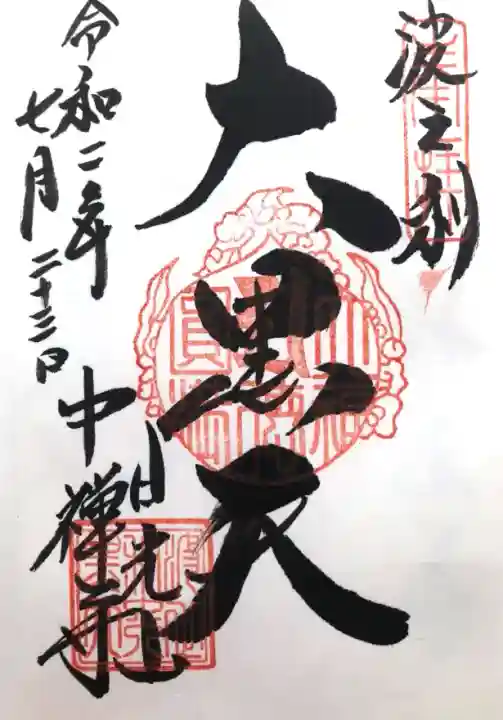 波之利
大黒天
令和二年
七月二十三日
日光
中禅寺